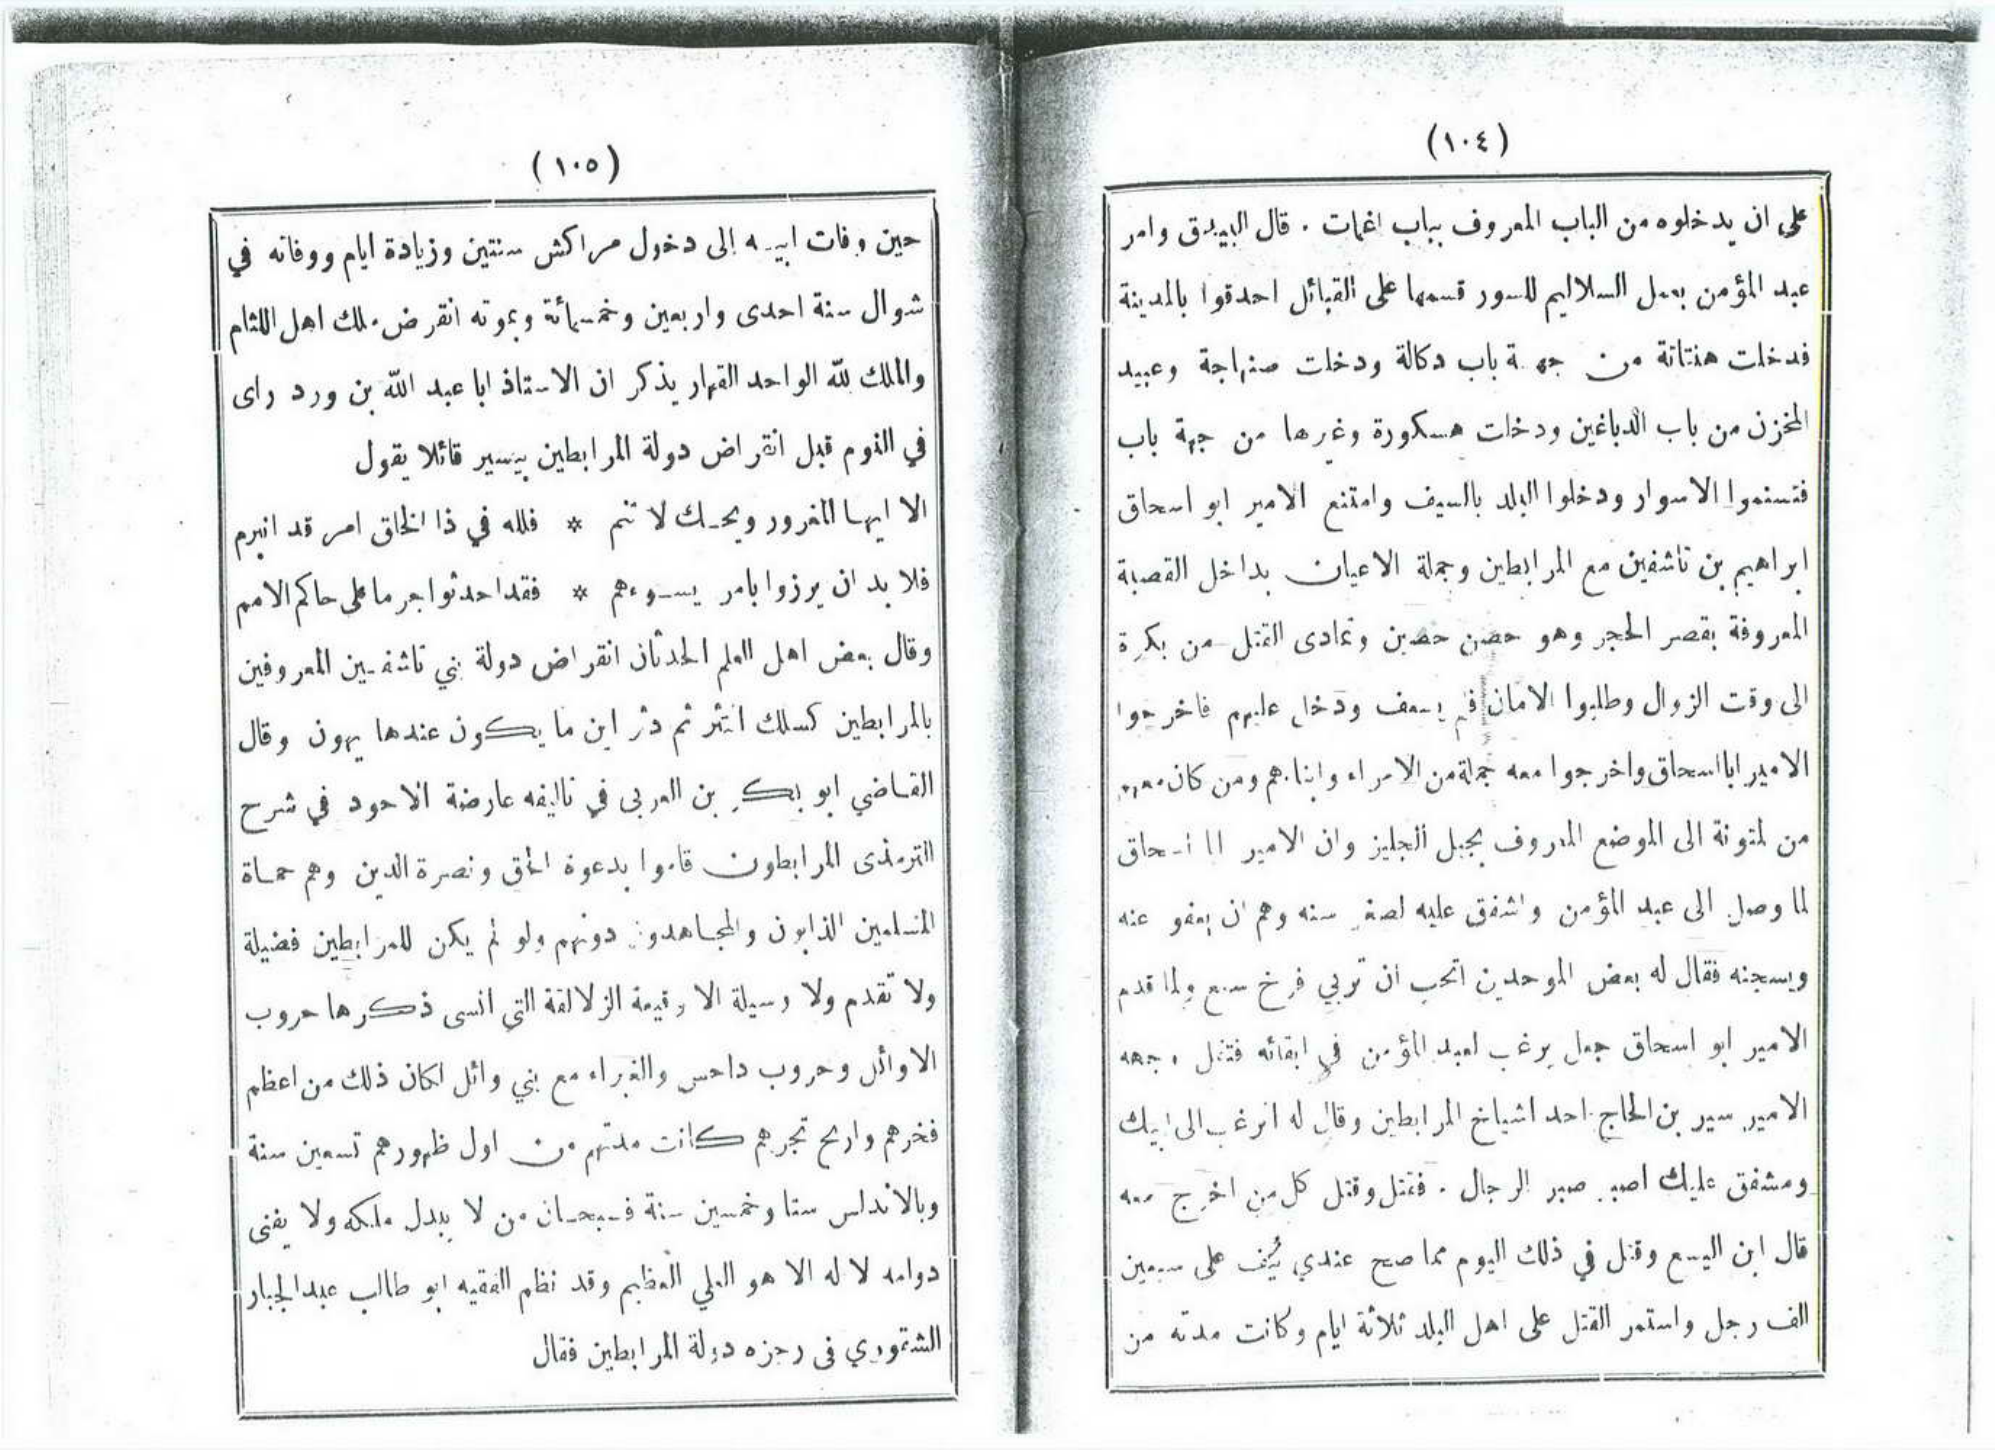 (١٠٤)
على ان يدخلوه من الباب المعروف بباب اغمات . قال البيدق وامر
عبد المؤمن بعمل السلاليم للسور قسمها على القبائل احدقوا بالمدينة
فدخلت هنتاتة من جهة باب دكالة ودخلت صنهاجة وعبيد
المخزن من باب الدباغين ودخلت هسكورة وغيرها من جهة باب
فتسنموا الاسوار ودخلوا البلد بالسيف وامتنع الامير ابو اسحاق
ابراهيم بن تاشفين مع المرابطين وجملة الاعيان بداخل القصبة
المعروفة بقصر الحجر وهو حصن حصين وتمادى القتل من بكرة
الى وقت الزوال وطلبوا الامان فلم يسعف ودخل عليهم فاخرجوا
الامير ابا اسحاق واخرجوا معه جملة من الامراء وابناءهم ومن كان معهم
من لمتونة الى الموضع المعروف بجبل الجليز وان الامير ابا اسحاق
لما وصل الى عبد المؤمن واشفق عليه لصغر سنه وهم ان يعفو عنه
ويسجنه فقال له بعض الموحدين اتحب ان تربي فرخ سبع ولما قدم
الامير ابو اسحاق جعل يرغب لعبد المؤمن في ابقائه فتفل وجهه
الامير سير بن الحاج احد اشياخ المرابطين وقال له اترغب الى ابيك
ومشفق عليك اصبر صبر الرجال . فقتل وقتل كل من اخرج معه
قال ابن اليسع وقتل في ذلك اليوم مما صح عندي نيف على سبعين
الف رجل واستمر القتل على اهل البلد ثلاثة ايام وكانت مدته من
(١٠٥)
حين وفات ابيه إلى دخول مراكش سنتين وزيادة ايام ووفاته في
شوال سنة احدى واربعين وخمسمائة وبموته انقرض ملك اهل اللثام
والملك لله الواحد القهار يذكر ان الاستاذ ابا عبد الله بن ورد راى
في النوم قبل انقراض دولة المرابطين بيسير قائلا يقول
الا ايها المغرور ويحك لا تنم * فلله في ذا الخلق امر قد انبرم
فلا بد ان يرزوا بامر يسوءهم * فقد احدثوا جرما على حاكم الامم
وقال بعض اهل العلم الحدثان انقراض دولة بني تاشفين المعروفين
بالمرابطين كسلك انتثر ثم دثر اين ما يكون عندها يهون وقال
القاضي ابو بكر بن العربى في تاليفه عارضة الاحود في شرح
الترمذى المرابطون قاموا بدعوة الحق ونصرة الدين وهم حماة
المسلمين الذابون والمجاهدون دونهم ولو لم يكن للمرابطين فضيلة
ولا تقدم ولا وسيلة الا وقيعة الزلالقة التي انسى ذكرها حروب
الاوائل وحروب داحس والغبراء مع بني وائل لكان ذلك من اعظم
فخرهم واربح تجرهم كانت مدتهم من اول ظهورهم تسعين سنة
وبالاندلس ستا وخمسين سنة فسبحان من لا يبدل ملكه ولا يفنى
دوامه لا له الا هو العلي العظيم وقد نظم الفقيه ابو طالب عبد الجبار
الشتموري فى رجزه دولة المرابطين فقال